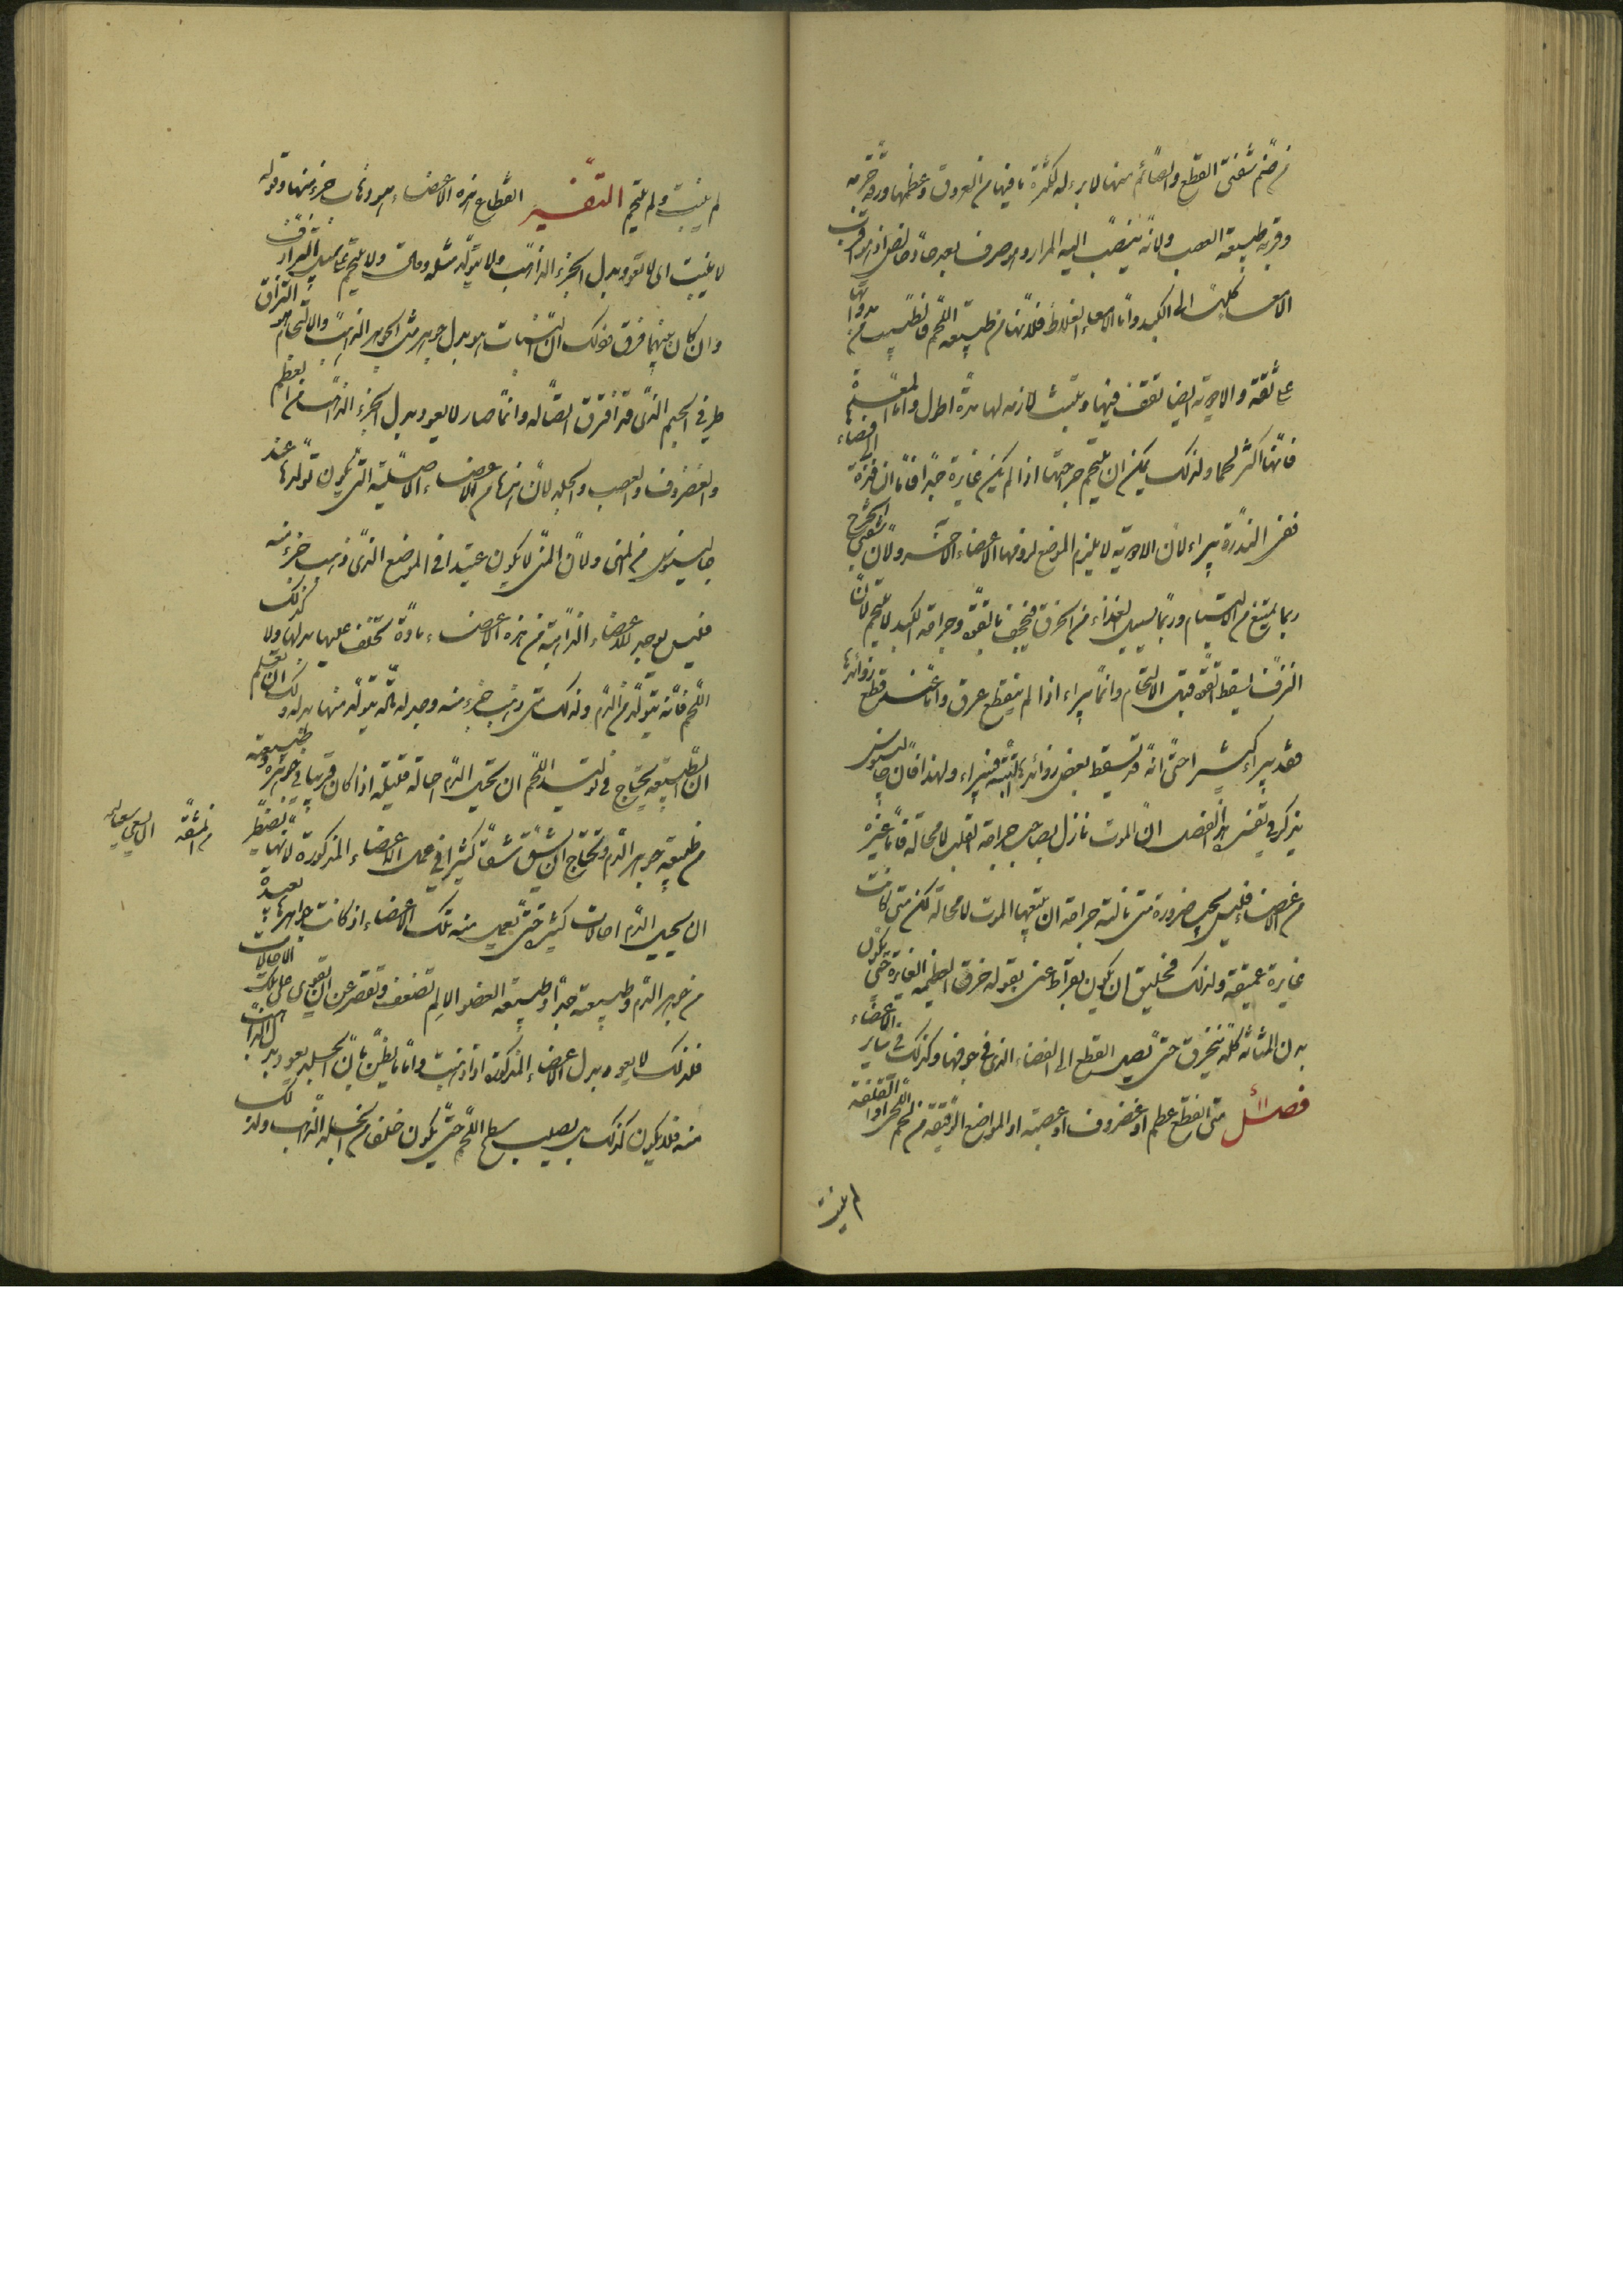 من ضم شفتي القطع والصائم منها لا برء له لكثرة ما فيها من العروق وعظمها ورقة جرمه
وقربه طبيعة العصب ولانه ينصب اليه المرار وهو صرف بعد حاد خالص اذ هو اقرب
الامعاء كلها الى الكبد واما الامعاء الغلاظ فلانها من طبيعة اللحم فالطبيب من مداواتها
على ثقة والادوية ايضا تقف فيها وتلبث لازمة لها مدة اطول واما المعدة
فانها اكثر لحما ولذلك يمكن ان يلتحم جرحها اذا لم يكن غايرة جدا فاما ان
ففي الندرة يبراء لان الادوية لا يلزم الموضع لزومها الاعضاء الاخر ولان شفتي الجرح
ربما يمتنع من الالتيام وربما يسيل الغذاء من الخرق وجراحة الكبد لا تلتحم لان
النزف يسقط القوة قبل الالتحام وانما يبراء اذا لم ينقطع عرق واما عند قطع زوائدها
فقد يبراء كثيرا حتى انه قد تسقط بعض زوائدها البتة فيبراء ولهذا قال جالينوس
يذكر في تفسير هذا الفصل ان الموت نازل بصاحب جراحة القلب لا محالة فاما غيره
من الاعضاء فليس يجب ضرورة متى نالته جراحة ان يتبعها الموت لا محالة لكن متى كانت
غايرة عميقة ولذلك فخليق ان يكون بقراط عنى بقوله خرق العظيمة الغايرة حتى يكون
بدن المثانة كله ينخرق حتى يصل القطع الى الفضاء الذي في جوفها وكذلك في سائر الاعضاء
فصل متى انقطع عظم او غضروف او عصبة او المواضع الرقيقة من لحم اللحى او القلفة
لم ينبت
لم ينبت ولم يلتحم التفسير انقطاع هذه الاعضاء هو ذهاب جزء منها وقوله
لا ينبت اى لا يعود بدل الجزء الذاهب ولا يتولد مثله وقال ولا يلتحم على سبيل الترادف
وان كان بينهما فرق فذلك ان النبات هو بدل جوهر مثل الجوهر الذاهب والالتحام هو التزاق
طرفي الجسم الذي قد افترق اتصاله وانما صار لا يعود بدل الجزء الذاهب من العظم
والغضروف والعصب والجلد لان هذه من الاعضاء الاصلية التي يكون تولدها عند
جالينوس من المنى ولان المنى لا يكون عتيدا في الموضع الذي ذهب جزء منه
فليس يوجد للاعضاء الذاهبة من هذه الاعضاء مادة تخلف عليها بدلها ولا كذلك
اللحم فانه يتولد من الدم ولذلك متى ذهب جزء منه وجد له مادة يتولد منها بدله ولك ان تعلم
ان الطبيعة تحتاج في توليد اللحم ان تحيل الدم احالة قليلة اذا كان قريبا في جوهره وطبيعته
من طبيعة جوهر الدم وتحتاج ان تشق كثيرا في عمل الاعضاء المذكورة لانها تضطر
من المشقة
ان يحيل الدم احالات كثيرة حتى تعمل منه تلك الاعضاء اذ كانت جواهرها بعيدة
من جوهر الدم وطبيعته جدا وطبيعة العضو الالم تضعف وتقصر عن ان تقوى على تلك الاحالات
فلذلك لا يعود بدل الاعضاء المذكورة اذا ذهبت واما ما يظن بان الجلد يعود بدل الذاهب
منه فلا يكون كذلك بل يصلب سطح اللحم حتى يكون خلفا من الجلد الذاهب ولذلك